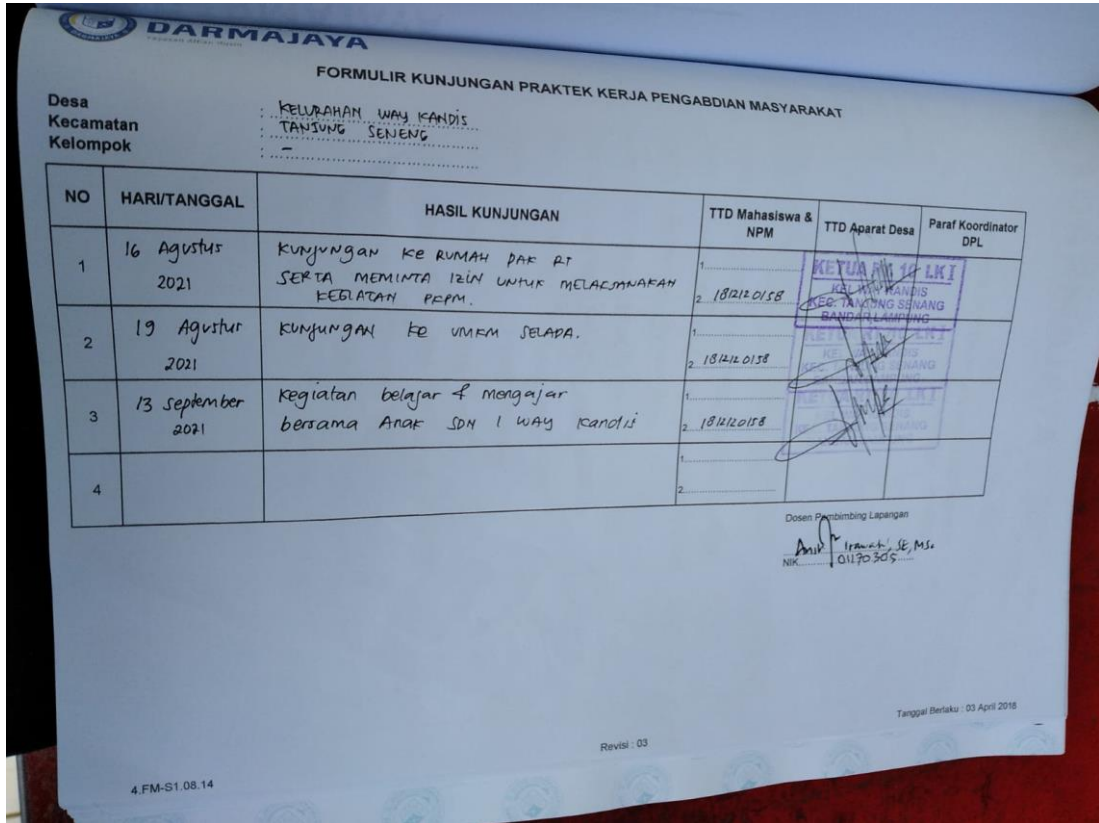 DARMAJAYA
FORMULIR KUNJUNGAN PRAKTEK KERJA PENGABDIAN MASYARAKAT
Desa : KELURAHAN WAY KANDIS
Kecamatan : TANJUNG SENENG
Kelompok : -
NO HARI/TANGGAL HASIL KUNJUNGAN TTD Mahasiswa & NPM TTD Aparat Desa Paraf Koordinator DPL
1 16 Agustus 2021
KUNJUNGAN KE RUMAH PAK RT
SERTA MEMINTA IZIN UNTUK MELAKSANAKAN
KEGIATAN PKPM.
1.
2. 1812120158
KETUA 10 LKI
KEC. TANJUNG SENANG
BANDAR LAMPUNG
2 19 Agustus 2021
KUNJUNGAN KE UMKM SELADA.
1.
2. 1812120158
3 13 September 2021
Kegiatan belajar & mengajar
bersama Anak SDN 1 WAY Kandis
1.
2. 1812120158
4
1.
2.
Dosen Pembimbing Lapangan
Irawati, SE, MSc
NIK 01170305
Tanggal Berlaku : 03 April 2018
Revisi : 03
4.FM-S1.08.14